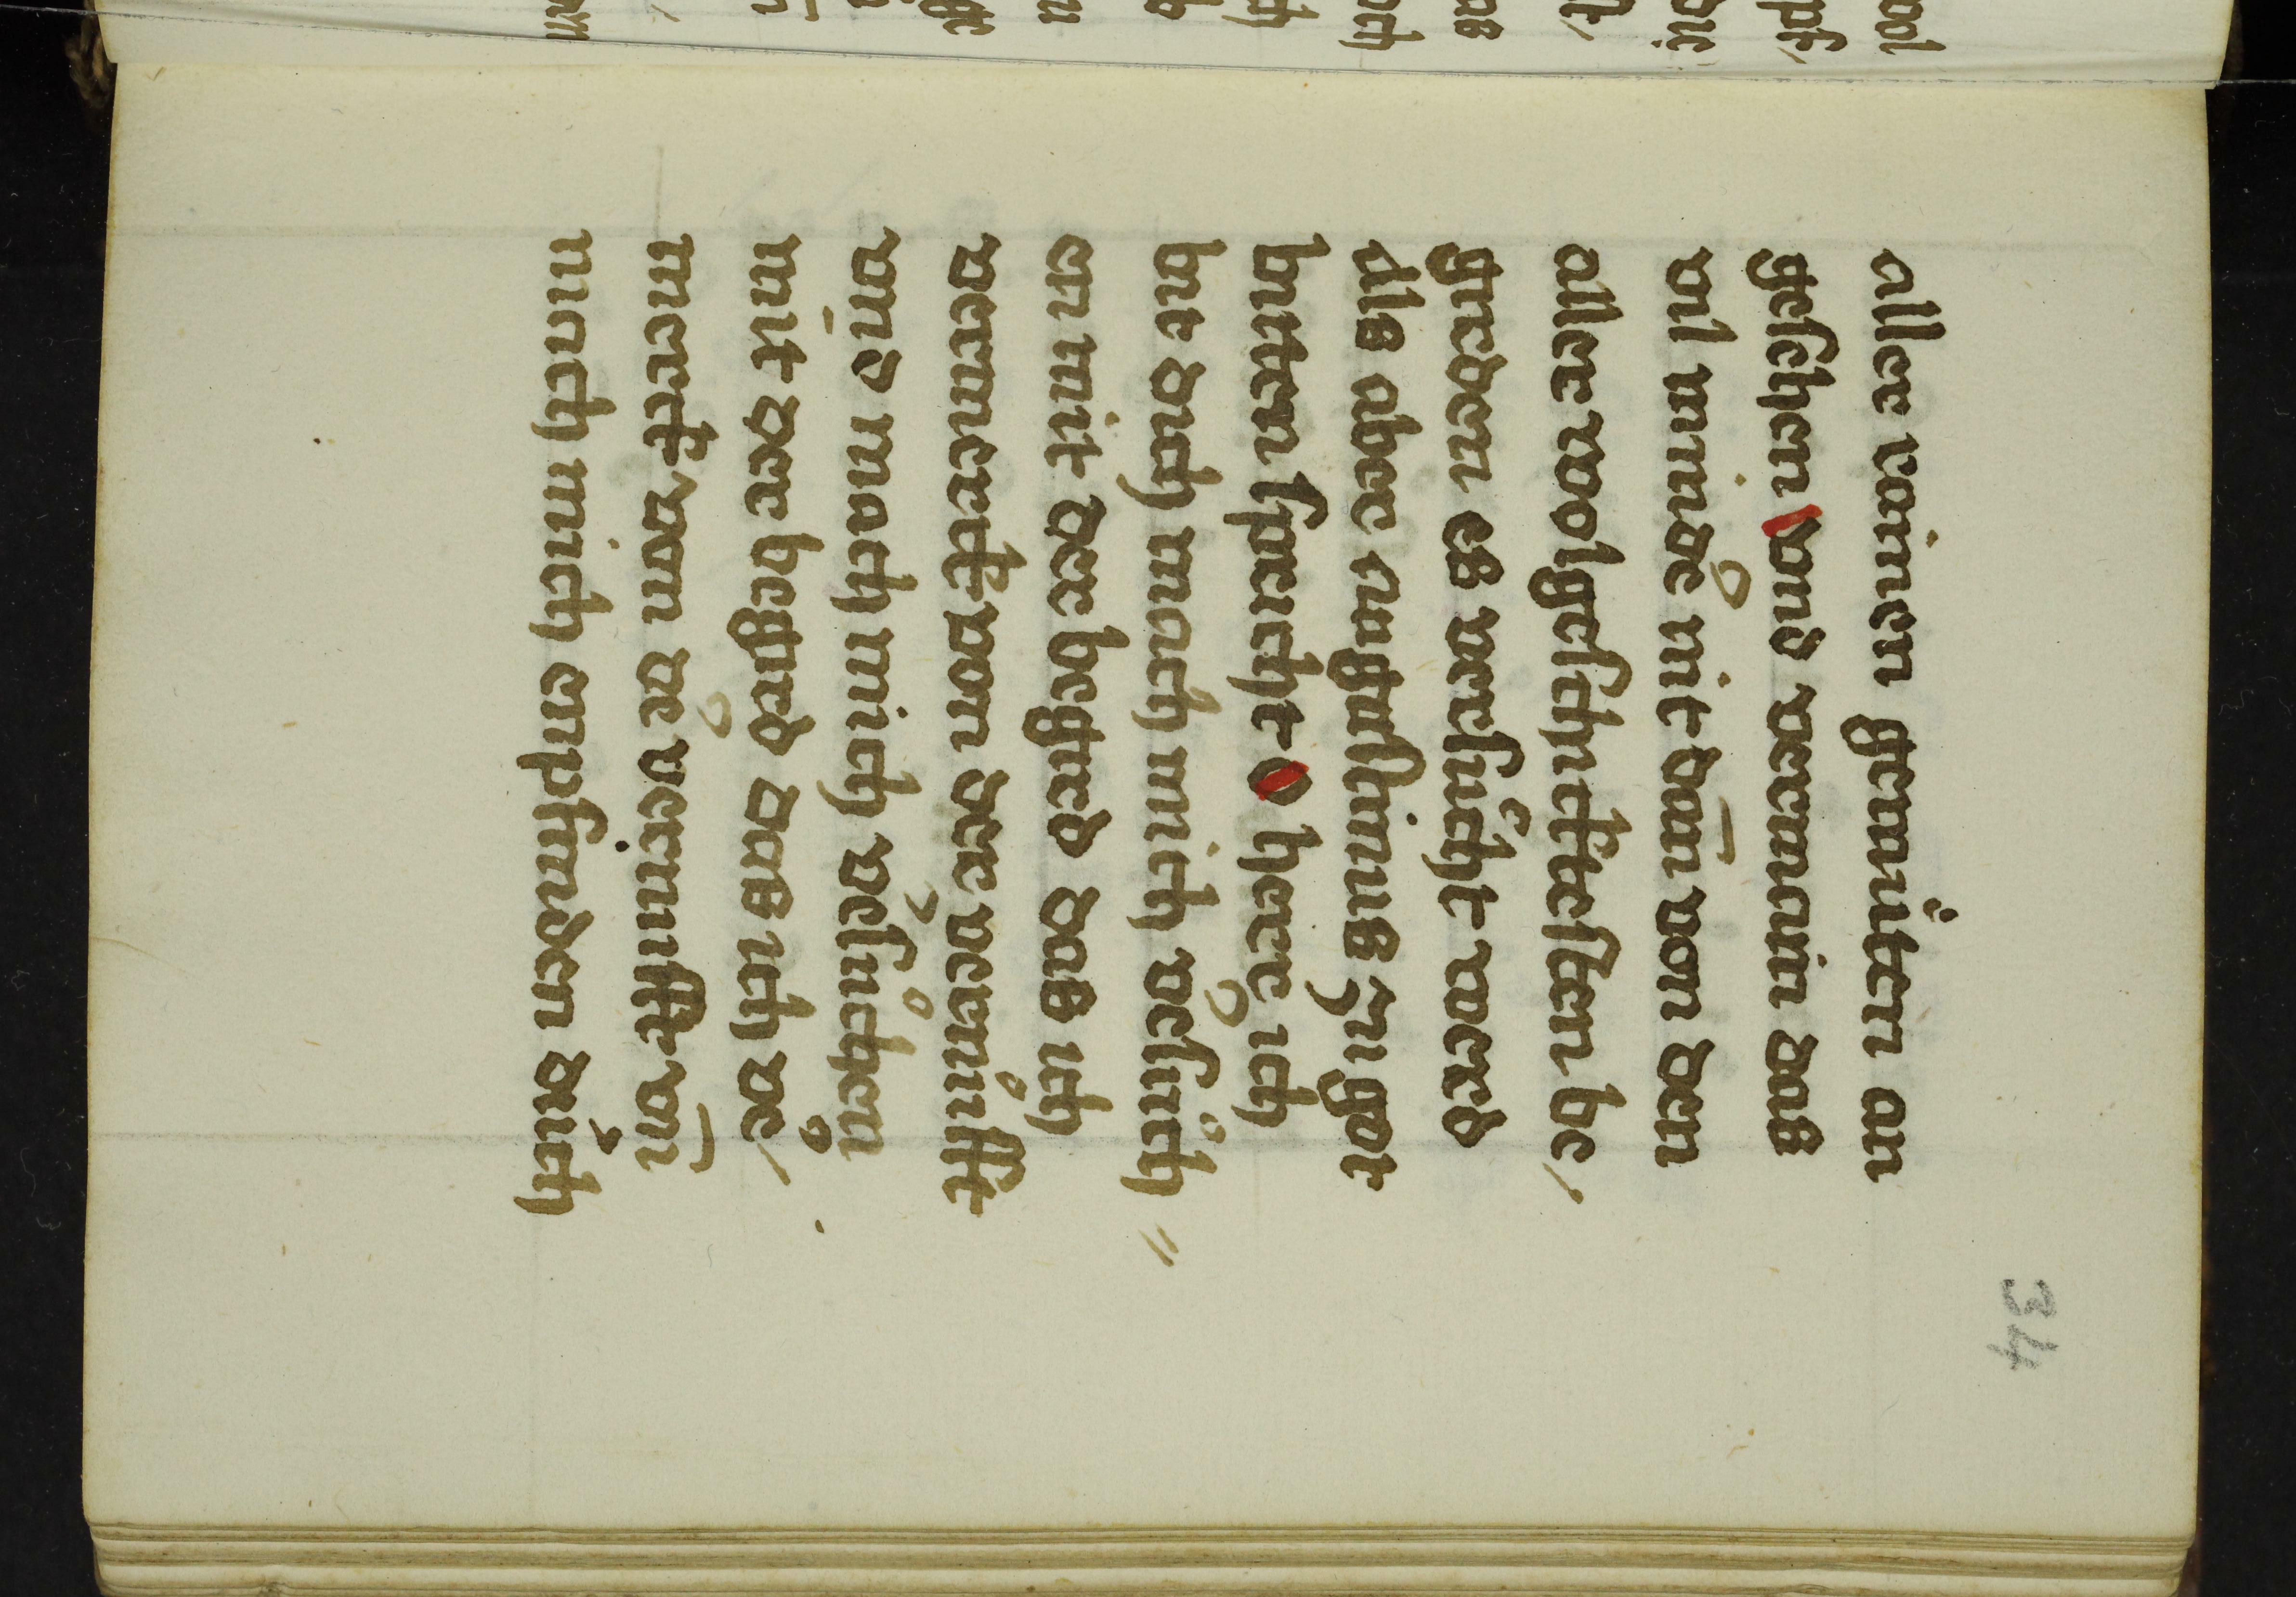 aller rainen gemüten an
gesehen vnd vernain das
vil munde nit dan̄ von den
aller wolgeschmecktesten be/
greben es versůcht werd
als aber augustinus zu got
hittten spricht o here ich
hit dich mach mich vesůch
en mit der begird das ich
vermerck von der vernůfft
vn̄d mach mich vesůchen
mit der begird das ich ve/
merck von de vernunfft vn̄
mach mich enpfinden dich
34